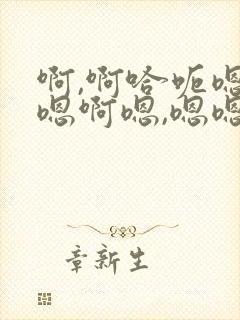 啊,啊哈呃嗯
嗯啊嗯,嗯嗯
章新生